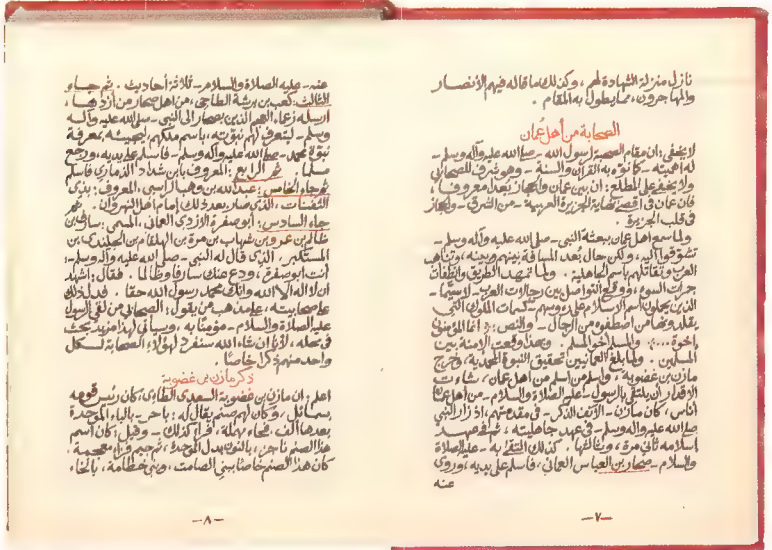 نازل منزلة الشهادة لهم، وكذلك ما قاله فيهم الأنصار
والمهاجرون، مما يطول به المقام.
الصحابة من أهل عُمان
لا يخفى: ان مقام الصحبة لرسول الله - صلى الله عليه وآله وسلم -
له أهميته - كما نوّه به القرآن والسنة - وهو شرف للصحابي
ولا يخفى على المطلع: ان بين عمان والحجاز بُعد معروف،
فان عمان في اقصى نهاية الجزيرة العربية - من الشرق - والحجاز
في قلب الجزيرة.
ولما سمع اهل عمان ببعثة النبي - صلى الله عليه وآله وسلم -
تشوّقوا اليه، ولكن حال بُعد المسافة بينهم وبينه، وتناهب
العرب وتقاتلهم باسم الجاهلية. ولما تمهد الطريق وانطفأت
جمرات السوء، ووقع التواصل بين رجالات العرب - لا سيّما -
الذين يحملون اسم الاسلام على رؤوسهم - كسمات الملوك التي
يقلدونها من اصطفوه من الرجال - والنص: (إنما المؤمنون
إخوة...) والمسلم أخو المسلم. وبهذا وقعت الأمنة بين
المسلمين. ولما بلغ العمانيين تحقيق النبوة المحمدية، وخرج
مازن بن غضوبة، واسلم من اسلم من اهل عمان، شاءت
الاقدار أن يلتقي بالرسول - عليه الصلاة والسلام - من أهل عمان
أناس، كان مازن - الآنف الذكر - في مقدمتهم، إذ زار النبي
صلى الله عليه وآله وسلم - في عهد جاهليته، ثم في عهد
إسلامه ثاني مرة، وثالثها. كذلك التقى به - عليه الصلاة
والسلام - صحار بن العباس العماني، فاسلم على يديه، وروى
عنه
-٧-
عنه - عليه الصلاة والسلام - ثلاثة أحاديث. ثم جاء
الثالث: كعب بن برشة الطاحي، من اهل صحار من أزدها،
ارسله زعماء العجم الذين بصحار إلى النبي - صلى الله عليه وآله
وسلم - ليتعرف لهم نبوّته، باسم ملكهم، ليجيئه بمعرفة
نبوّة محمد - صلى الله عليه وآله وسلم - فاسلم على يديه، ورجع
مسلما. ثم الرابع: المعروف بابن شداد الذماري فاسلم
ثم جاء الخامس: عبدالله بن وهب الراسبي، المعروف: بذي
الثفنات، الذي صار بعد ذلك إمام أهل النهروان. ثم
جاء السادس: أبو صفرة الأزدي العماني، المسمى: سارق بن
ظالم بن عمرو بن شهاب بن مرة بن الهلقام بن الجلندى بن
المستكبر، الذي قال له النبي - صلى الله عليه وآله وسلم -:
أنت أبو صفرة، ودع عنك سارقا وظالما. فقال: أشهد
أن لا اله إلا الله وانك محمد رسول الله حقا. فدل ذلك
على صحابيته، على مذهب من يقول: الصحابي من لقي الرسول
عليه الصلاة والسلام - مؤمنا به، وسيأتي لهذا مزيد بحث
في محله، لأننا إن شاء الله سنفرد لهؤلاء الصحابة لكل
واحد منهم ذكرا خاصّا.
ذكر مازن بن غضوبة
اعلم: ان مازن بن غضوبة السعدي الطائي، كان رئيس قومه
بسمائل، وكان لهم صنم يقال له: باحر - بالباء الموحدة
بعدها ألف، فحاء مهملة، فراء كذلك - وقيل: كان اسم
هذا الصنم ناجر، بالنون بدل الموحدة، ثم جيم وراء معجمة.
كان هذا الصنم خاصّا ببني الصامت، وبني خطامة، بالخاء
-٨-